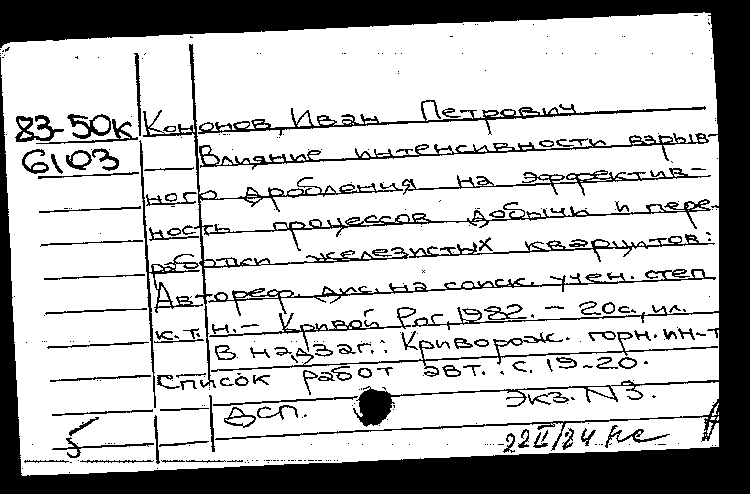 83-50к Кононов, Иван Петрович
6103 Влияние интенсивности взрыв-
ного дробления на эффектив-
ность процессов добычи и пере-
работки железистых кварцитов:
Автореф. дис. на соиск. учен. степ
к.т.н. - Кривой Рог, 1982. - 20с., ил.
В надзаг.: Криворож. горн. ин-т
Список работ авт.: с. 19-20.
ДСП. Экз. N3.
5 22 II/84